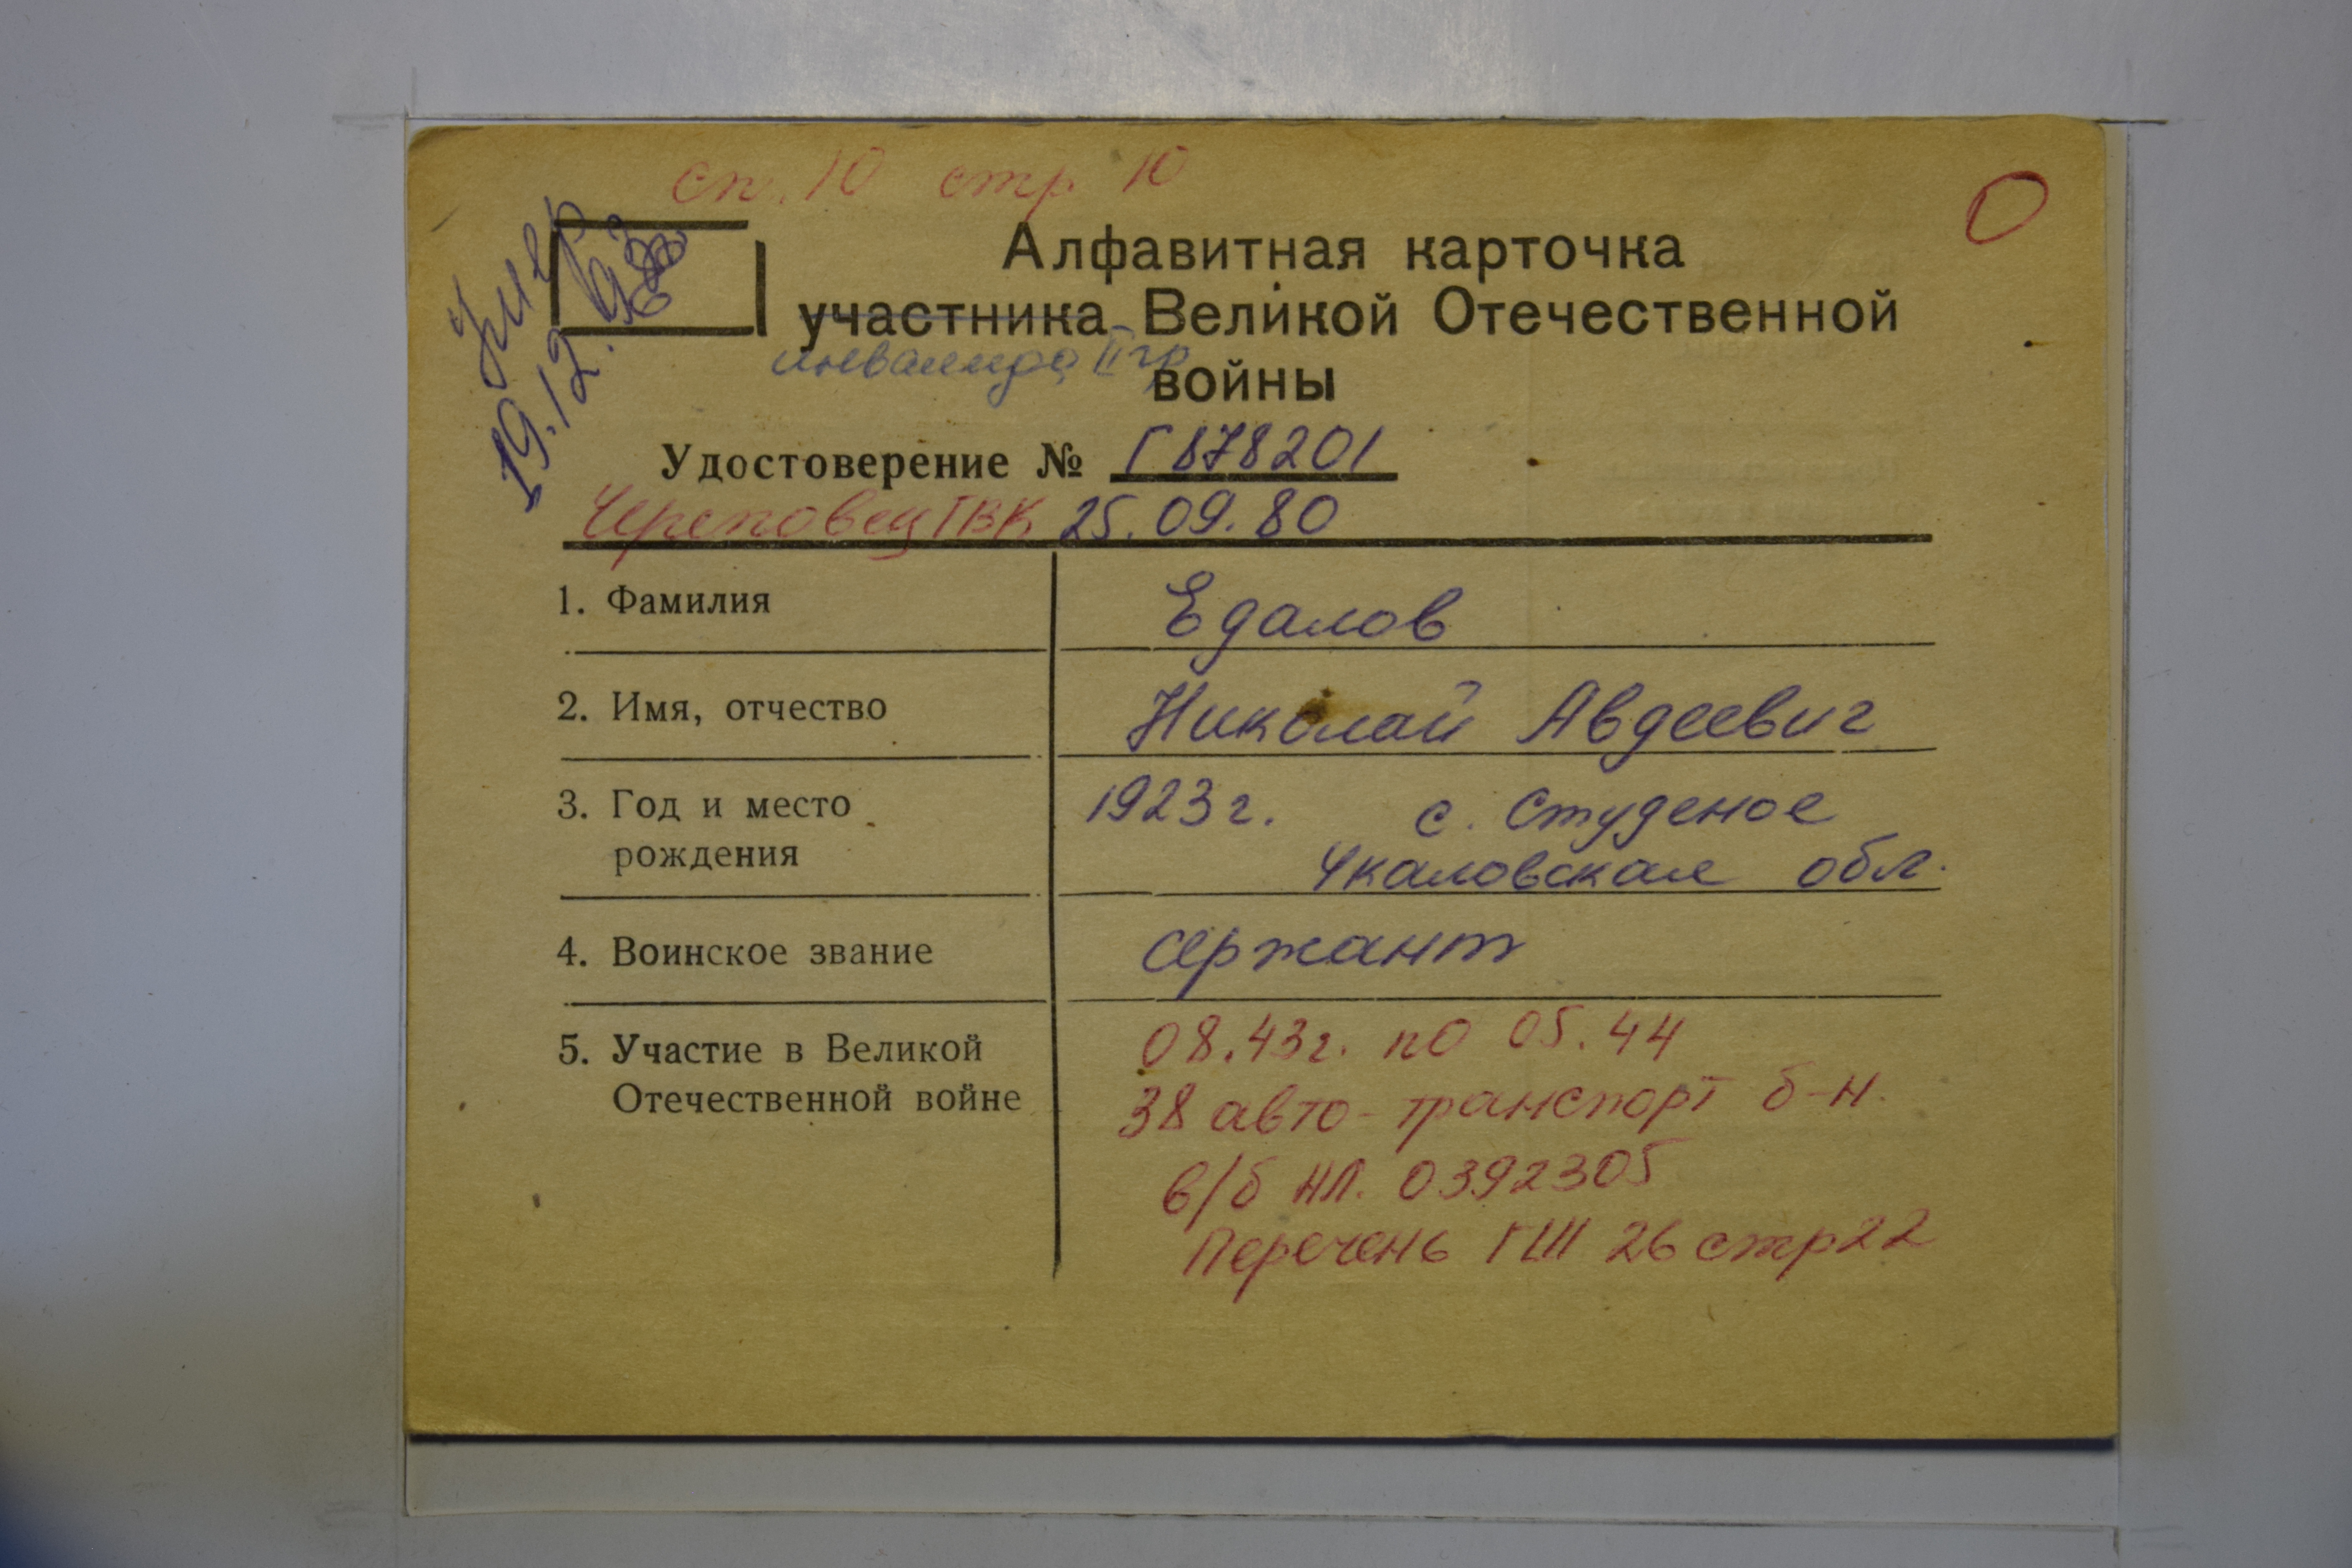 сп. 10 стр 10
О
умер
19.12.
Алфавитная карточка
участника Великой Отечественной
инвалида II гр
войны
Удостоверение № Г 878201
Череповец ГВК 25.09.80
1. Фамилия Едалов
2. Имя, отчество Николай Авдеевич
3. Год и место 1923 г. с. Студеное
рождения Чкаловская обл.
4. Воинское звание сержант
5. Участие в Великой 08.43г. по 05.44
Отечественной войне 38 авто-транспорт б-н.
в/б НЛ. 0392305
Перечень ГШ 26 стр 22